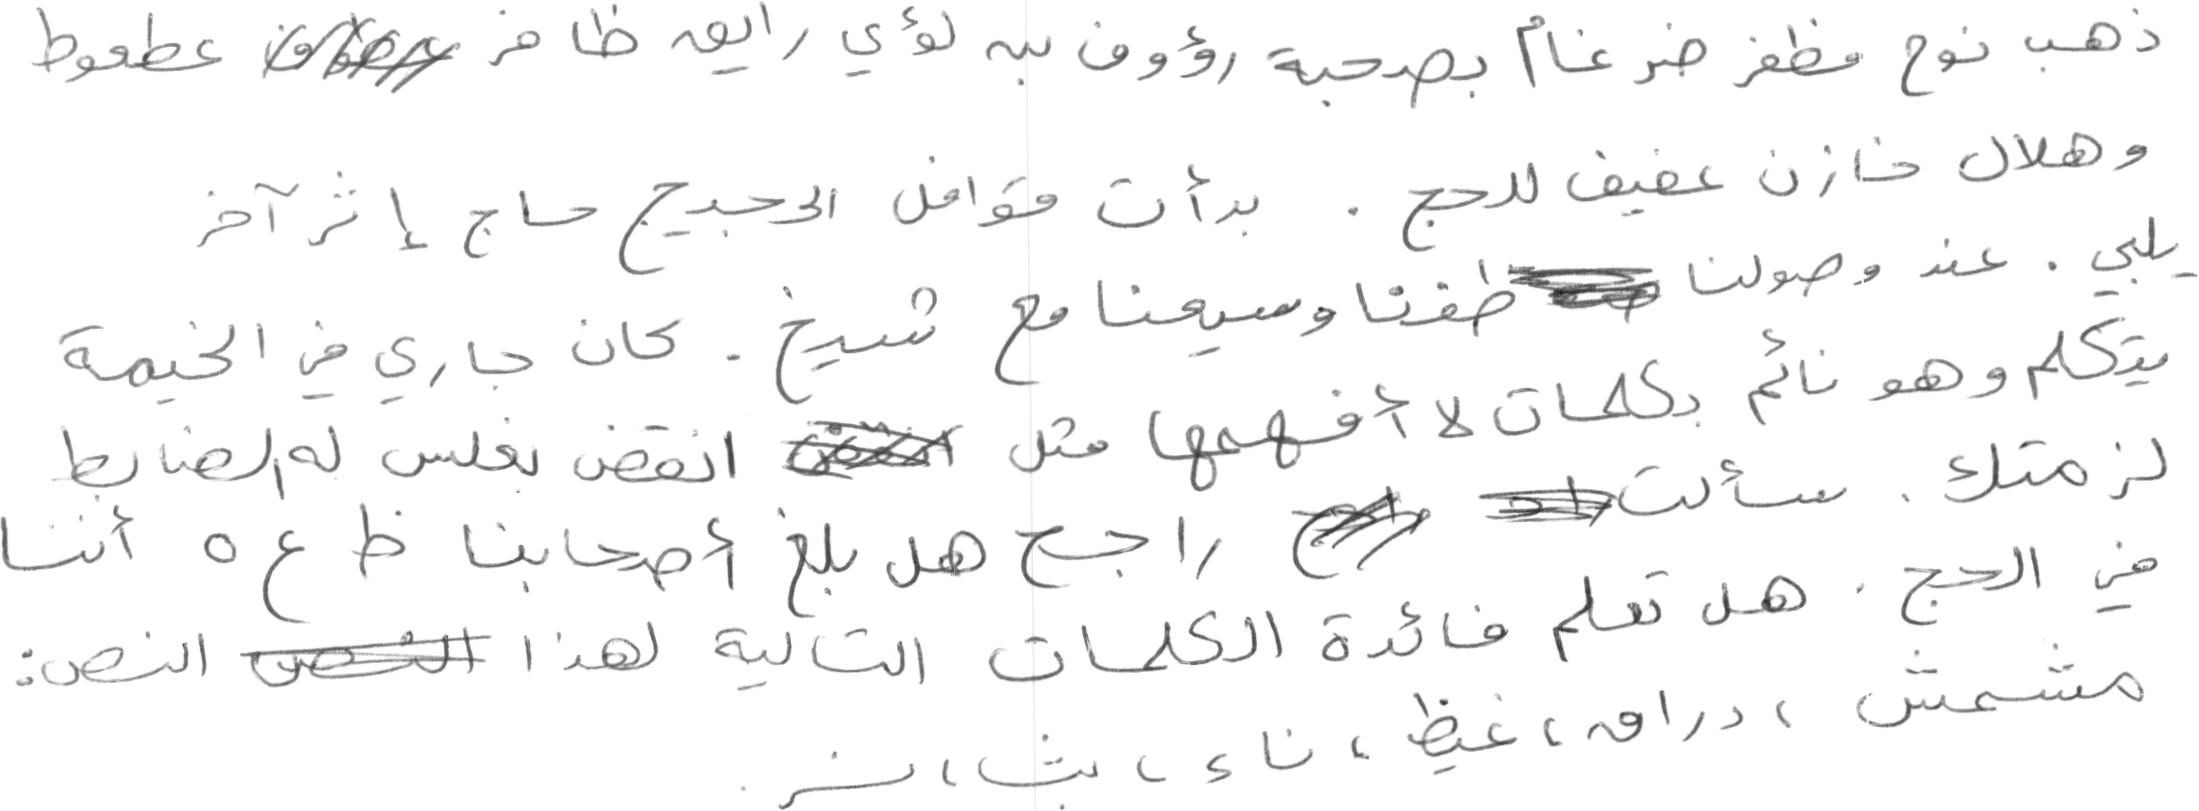 ذهب نوح مظفر ضرغام بصحبة رؤوف بيه لؤي رايق ظافر عطعوط
وهلال خازن عفيف للحج . بدأت قوافل الحجيج حاج إثر آخر
يلبي . عند وصولنا طفنا وسعينا مع شيخ . كان جاري في الخيمة
يتكلم وهو نائم بكلمات لا أفهمها مثل انقض بغلس له الضابط
لزمتك . سألت راجح هل بلغ أصحابنا ظ ع ه أننا
في الحج . هل تعلم فائدة الكلمات التالية لهذا النص :
مشمش ، دراق ، غيظ ، ناء ، بث ، نز .